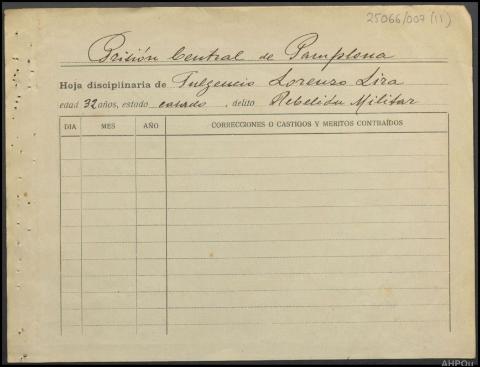 25066/007(11)
Prisión Central de Pamplona
Hoja disciplinaria de Fulgencio Lorenzo Lira
edad 32 años, estado casado, delito Rebelión Militar
DIA MES AÑO CORRECCIONES O CASTIGOS Y MERITOS CONTRAÍDOS
AHPOu